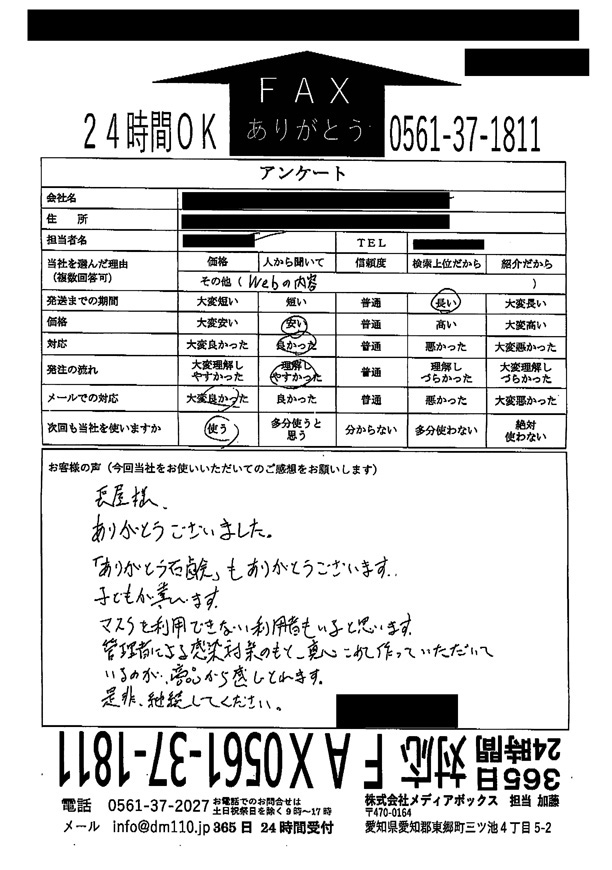 FAX
ありがとう
24時間OK
0561-37-1811
アンケート
会社名
住 所
担当者名 TEL
当社を選んだ理由 (複数回答可) 価格 人から聞いて 信頼度 検索上位だから 紹介だから
その他( Webの内容 )
発送までの期間 大変短い 短い 普通 長い 大変長い
価格 大変安い 安い 普通 高い 大変高い
対応 大変良かった 良かった 普通 悪かった 大変悪かった
発注の流れ 大変理解しやすかった 理解しやすかった 普通 理解しづらかった 大変理解しづらかった
メールでの対応 大変良かった 良かった 普通 悪かった 大変悪かった
次回も当社を使いますか 使う 多分使うと思う 分からない 多分使わない 絶対使わない
お客様の声(今回当社をお使いいただいてのご感想をお願いします)
長屋様、
ありがとうございました。
「ありがとう石鹸」もありがとうございます。
子どもが喜びます。
マスクを利用できない利用者もいると思います。
管理者による感染対策のもと、真心こめて作っていただいて
いるのが、商品から感じとれます。
是非、継続してください。
365日 24時間 対応 FAX0561-37-1811
電話 0561-37-2027 お電話でのお問合せは 土日祝祭日を除く9時〜17時
メール info@dm110.jp 365日 24時間受付
株式会社メディアボックス 担当 加藤
〒470-0164
愛知県愛知郡東郷町三ツ池4丁目5-2